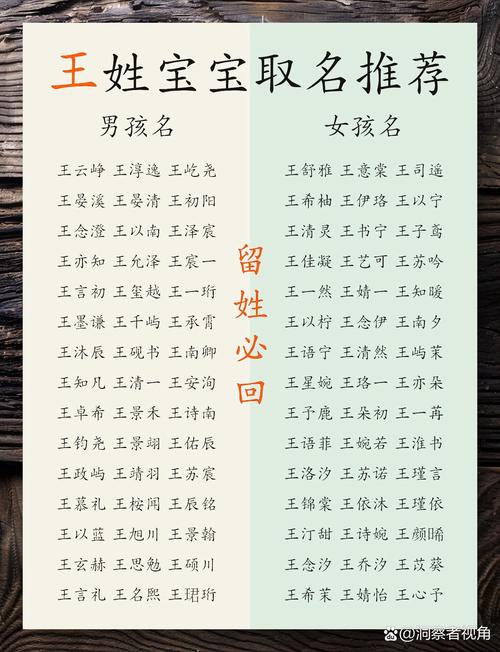 王姓宝宝取名推荐
男孩名
王云峥 王淳逸 王屹尧
王晏溪 王晏清 王初阳
王念澄 王以南 王泽宸
王亦知 王允泽 王宸一
王言初 王玺越 王一珩
王墨谦 王千屿 王承霄
王沐辰 王砚书 王南卿
王知凡 王清一 王安洵
王卓希 王景禾 王诗南
王钧尧 王景翊 王佑辰
王政屿 王靖羽 王苏宸
王慕礼 王桉闻 王辰铭
王以蓝 王旭川 王景翰
王玄赫 王思勉 王硕川
王言礼 王名熙 王珺珩
女孩名
王舒雅 王意棠 王司遥
王希柚 王伊珞 王以宁
王清灵 王书宁 王子鸢
王佳凝 王艺可 王苏吟
王一然 王婧一 王知暖
王以柠 王念伊 王南夕
王语宁 王清然 王屿茉
王星婉 王珞一 王亦朵
王予鹿 王朵初 王一苒
王语菲 王婉若 王淮书
王洛汐 王苏诺 王瑾言
王锦棠 王依沐 王瑾依
王汀甜 王诗婉 王颜晞
王念汐 王乔汐 王苡葵
王希茉 王婧怡 王心予
留姓必回
@洞察者视角